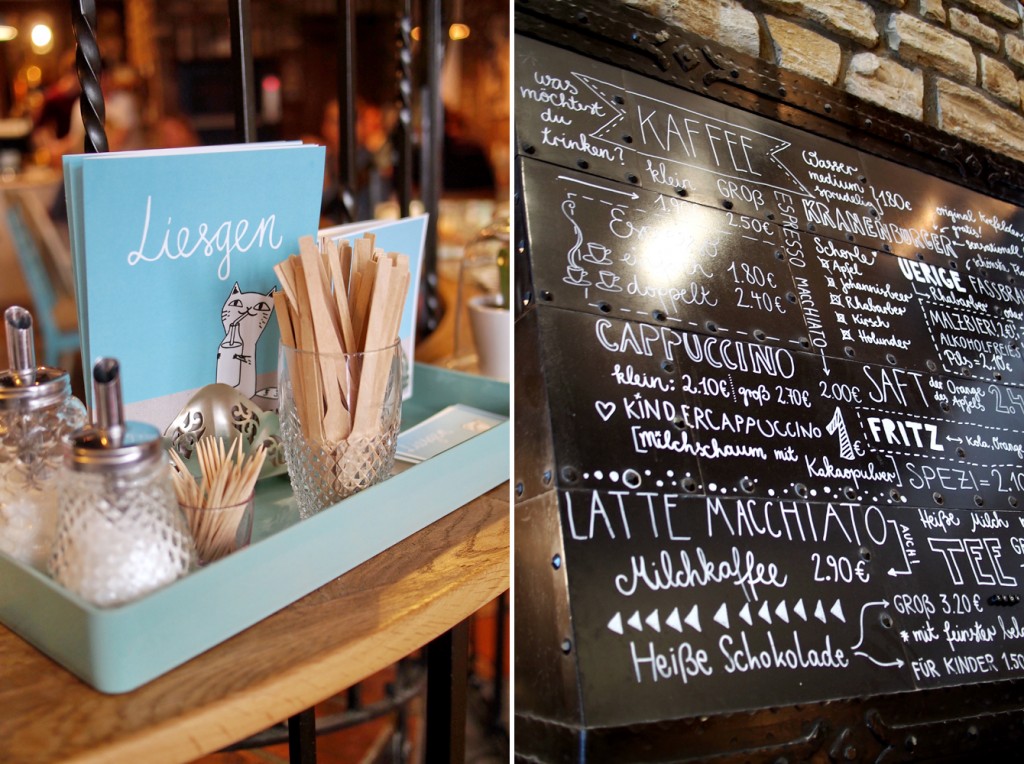 Liesgen
was
möchtest
du
trinken?
KAFFEE
klein GROß
2.50€
einfach 1.80€
doppelt 2.40€
ESPRESSO MACCHIATO
2.00€
Wasser
medium
sprudelig 1.80€
KRANENBURGER
original
gratis!
Schorle
Apfel
Johannisbeer
Rhabarber
Kirsch
Holunder
UERIGE FASSBRAU
Rhabarber oder
MALZBIER
ALKOHOLFREIES
Pils = 2.10€
CAPPUCCINO
klein: 2.10€ groß 2.70€
KINDERCAPPUCCINO 1
[Milchschaum mit
Kakaopulver]
SAFT der Orange
des Apfels
FRITZ Kola, Orange
SPEZI = 2.10
LATTE MACCHIATO
Milchkaffee 2.90€
AUCH!
Heiße Milch
TEE
Heiße Schokolade
GROß 3.20€
*mit feinster
FÜR KINDER 1.50